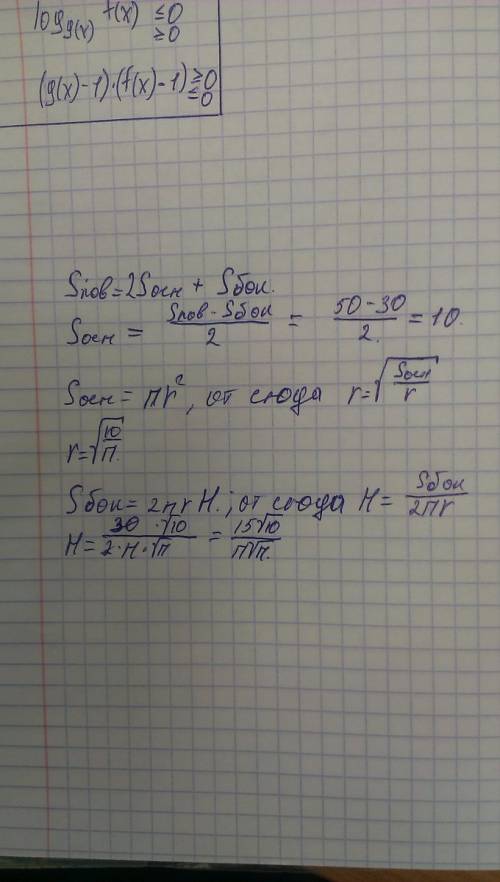 log g(x) f(x) ≤0
≥0
(g(x)-1)·(f(x)-1) ≥0
≤0
Sпов=2Sосн + Sбок.
Sосн = (Sпов-Sбок)/2 = (50-30)/2. = 10.
Sосн = πr², от сюда r=√(Sосн/r)
r=√(10/π).
Sбок= 2πrH.; от сюда H= Sбок/(2πr)
H= (30·√10)/(2·π·√π) = (15√10)/(π√π).